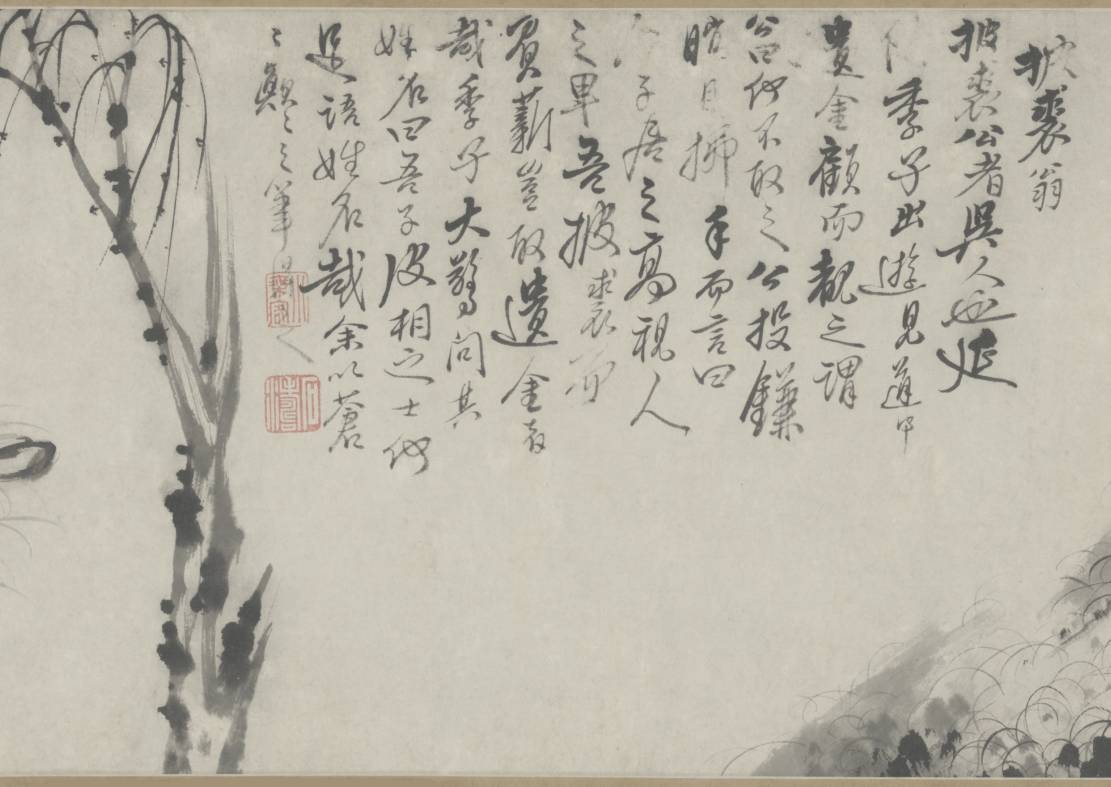 披裘翁
披裘公者吳人也延
季子出遊見道中
遺金顧而覩之謂
公曰何不取之公投鎌
瞋目拂手而言曰
子居之高視人
之卑吾披裘而
負薪豈取遺金者
哉季子大驚問其
姓名曰吾子皮相之士何
足語姓名哉余以蒼
之筆